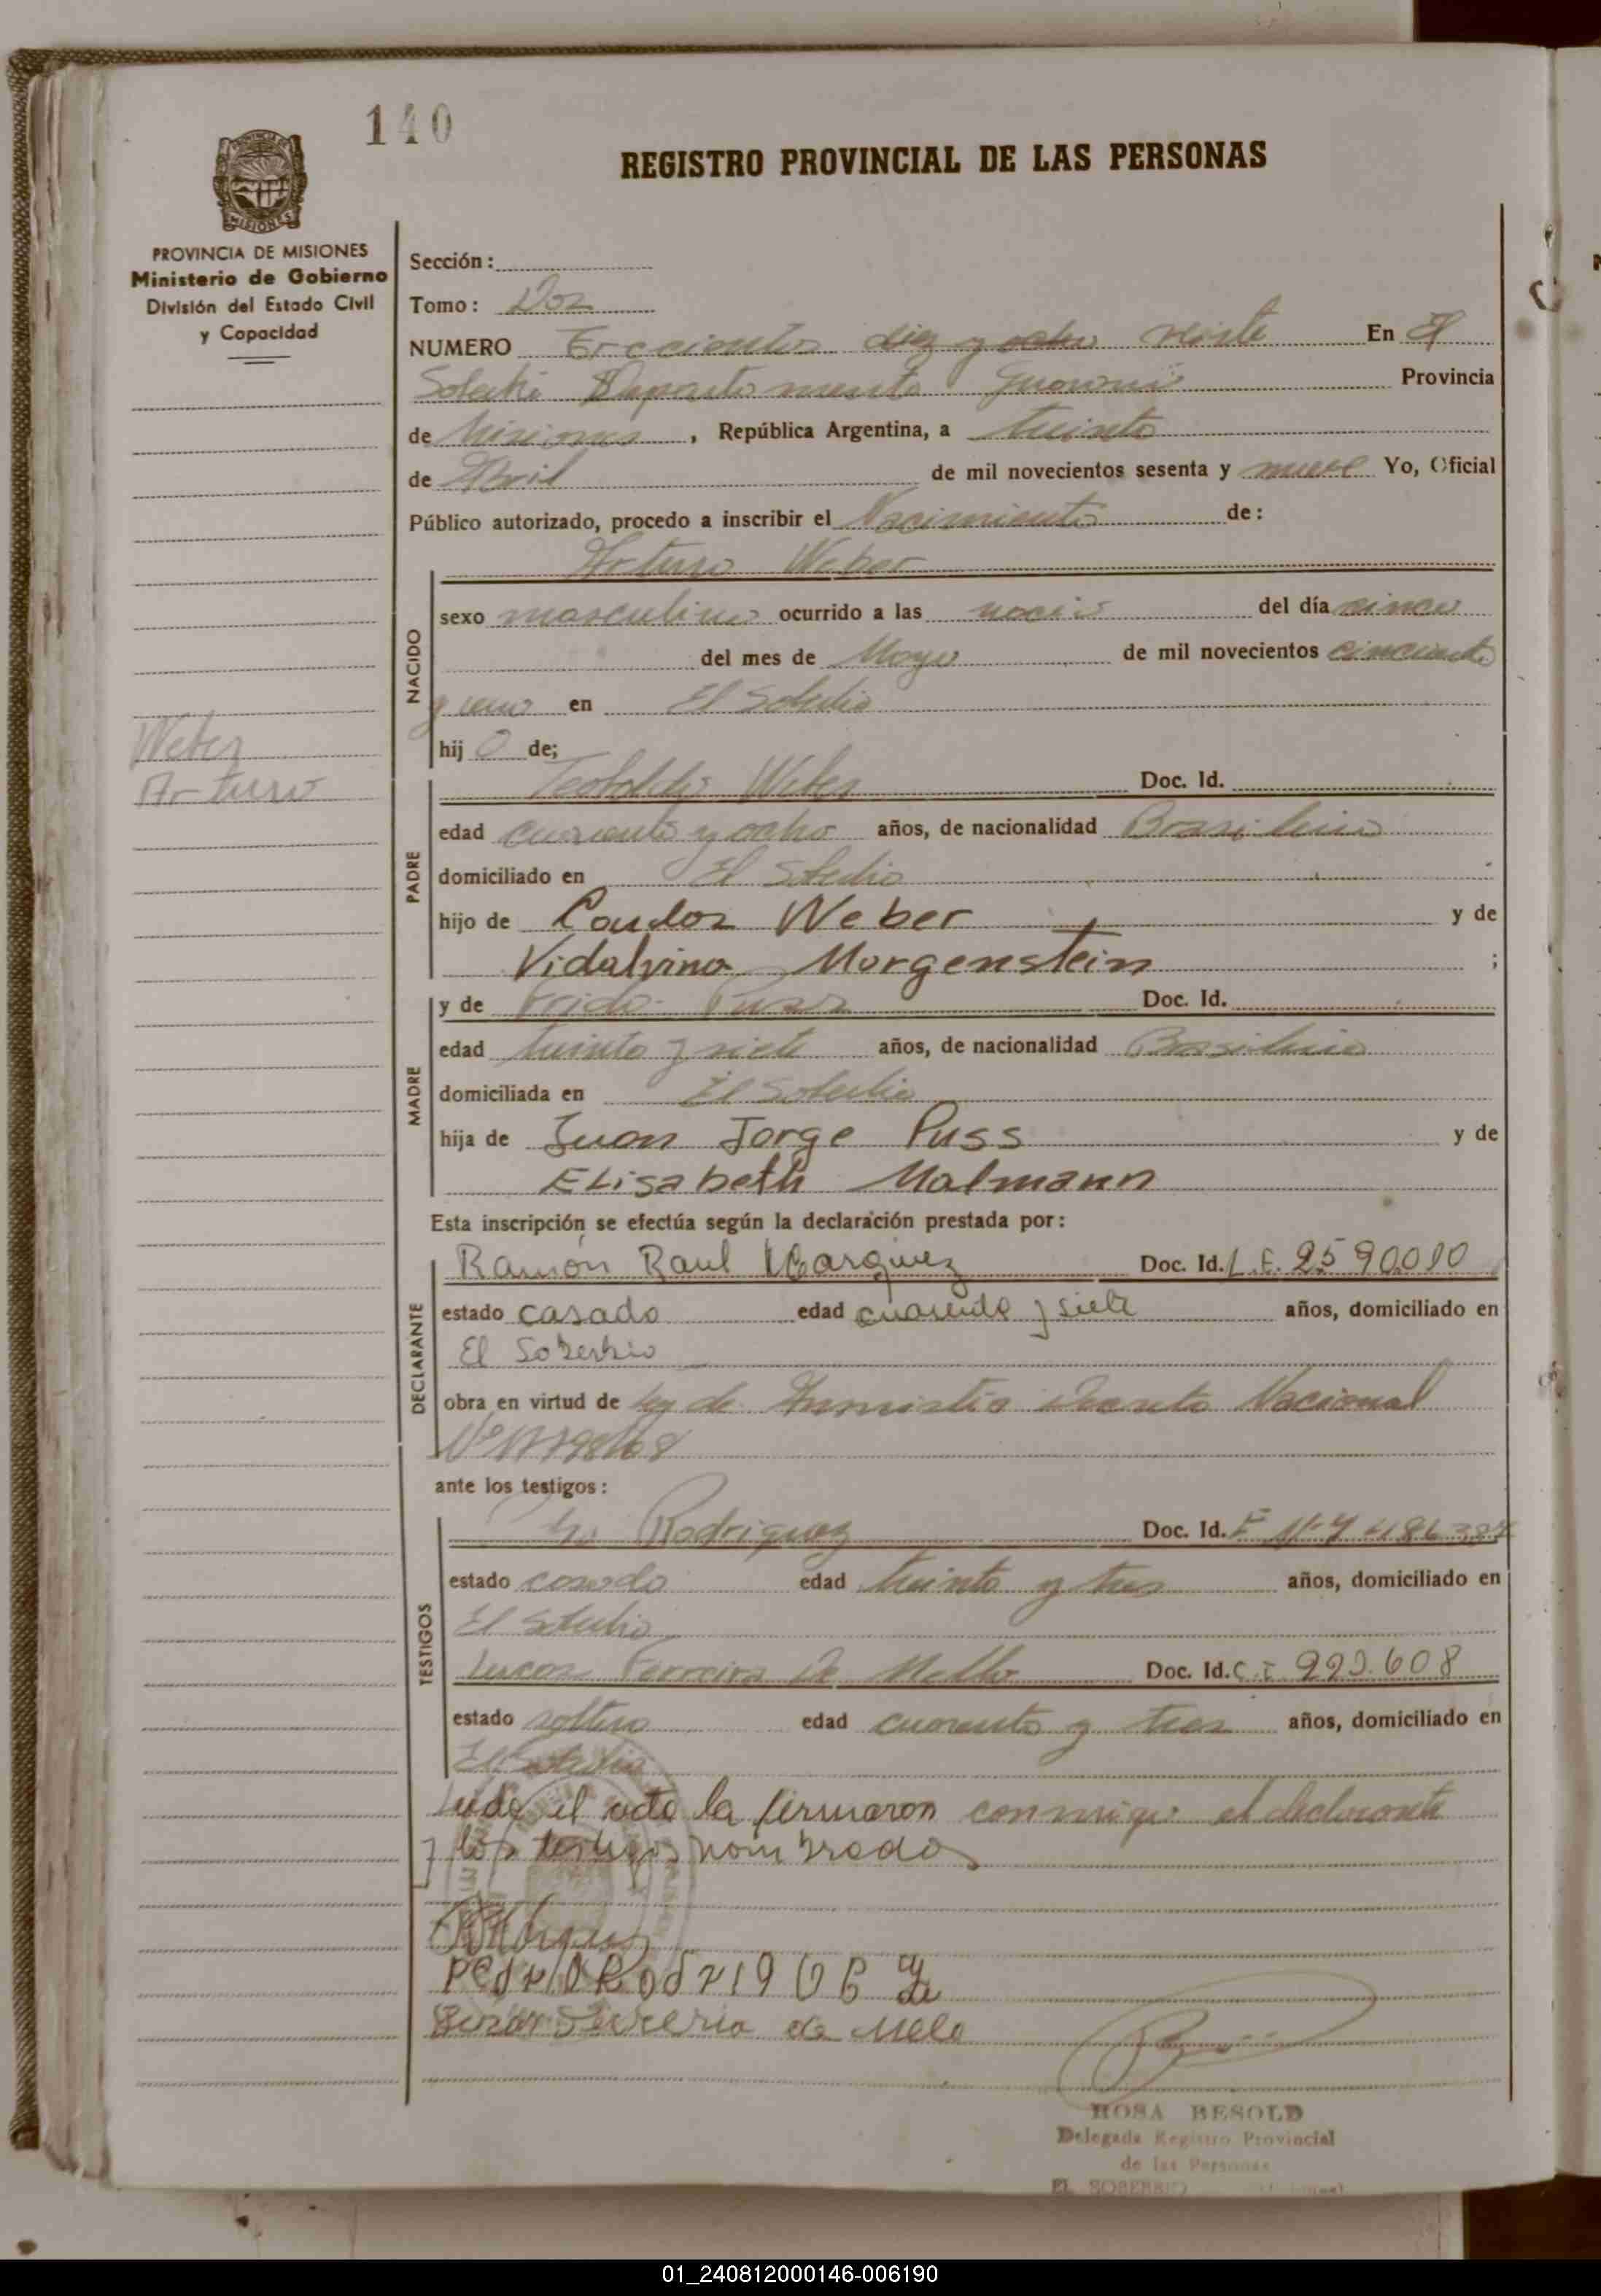 140
REGISTRO PROVINCIAL DE LAS PERSONAS
PROVINCIA DE MISIONES
Ministerio de Gobierno
División del Estado Civil
y Capacidad
Sección:
Tomo: Dos
NUMERO Trecientos diez y ocho En El
Departamento Guarani Provincia
de Misiones, República Argentina, a treinta
de Abril de mil novecientos sesenta y nueve Yo, Oficial
Público autorizado, procedo a inscribir el Nacimiento de:
Arturo Weber
NACIDO
sexo masculino ocurrido a las del día cinco
del mes de Mayo de mil novecientos cincuenta
y uno en El Soberbio
hij o de;
Weber
Arturo
PADRE
Weber Doc. Id.
edad cuarenta y ocho años, de nacionalidad Brasilera
domiciliado en El Soberbio
hijo de Carlos Weber y de
Vidalvina Morgenstein ;
MADRE
y de Frida Puss Doc. Id.
edad treinta y siete años, de nacionalidad Brasilera
domiciliada en El Soberbio
hija de Juan Jorge Puss y de
Elisabeth Malmann
Esta inscripción se efectúa según la declaración prestada por:
DECLARANTE
Ramón Raul Marquez Doc. Id. L.E. 2590010
estado casado edad cuarenta y siete años, domiciliado en
El Soberbio
obra en virtud de ley de Amnistia Decreto Nacional
ante los testigos:
TESTIGOS
Rodriguez Doc. Id.
estado casado edad treinta y tres años, domiciliado en
El Soberbio
Ferreira De Mello Doc. Id. C.I. 223.608
estado soltero edad cuarenta y tres años, domiciliado en
El Soberbio
Leida el acta la firmaron conmigo el declarante
y los testigos nombrados
Pedro Rodriguez
de Melo
ROSA BESOLD
Delegada Registro Provincial
de las Personas
EL SOBERBIO
01_240812000146-006190